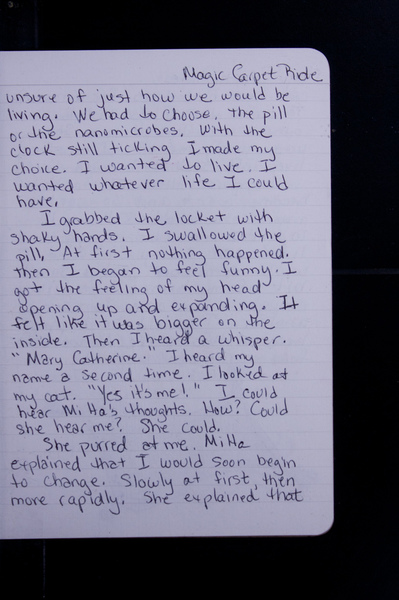 Magic Carpet Ride
unsure of just how we would be
living. We had to choose. the pill
or the nanomicrobes. With the
clock still ticking I made my
choice. I wanted to live. I
wanted whatever life I could
have.
I grabbed the locket with
shaky hands. I swallowed the
pill. At first nothing happened.
then I began to feel funny. I
got the feeling of my head
opening up and expanding. It
felt like it was bigger on the
inside. Then I heard a whisper.
"Mary Catherine." I heard my
name a second time. I looked at
my cat. "Yes it's me!" I could
hear thoughts. How? Could
she hear me? She could.
She purred at me.
explained that I would soon begin
to change. Slowly at first, then
more rapidly. She explained that